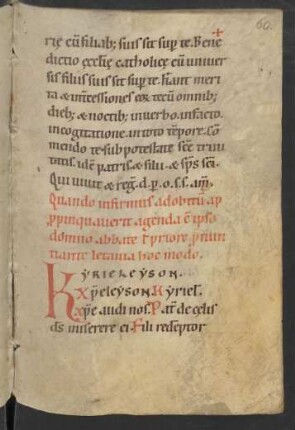 60.
rię cū filiab; suis sit sup te. Bene
dictio ęcclię catholicę cū univer
sis filiis suis sit sup te. Sant meri
ta & int̄cessiones eoꝝ tecū omnib;
dieb; & noctib; in verbo. in facto.
in cogitatione. in toto tēpore. Cō
mendo te sub potestate scē trini
tatis. idē patris & filii & sp̄s sc̄i.
Qui vivit & reg. d. p. o. s. s. am̄.
Quando infirmus ad obitū ap
ppinquaverit agenda ē ipso
domno abbate t̄ priore p̄nun
tiante letania hoc modo.
Kyrieleyson.
Xp̄eleyson. Kyriel.
Xp̄e audi nos. Pat̄ de cęlis
d̄s miserere ei. Fili redēptor